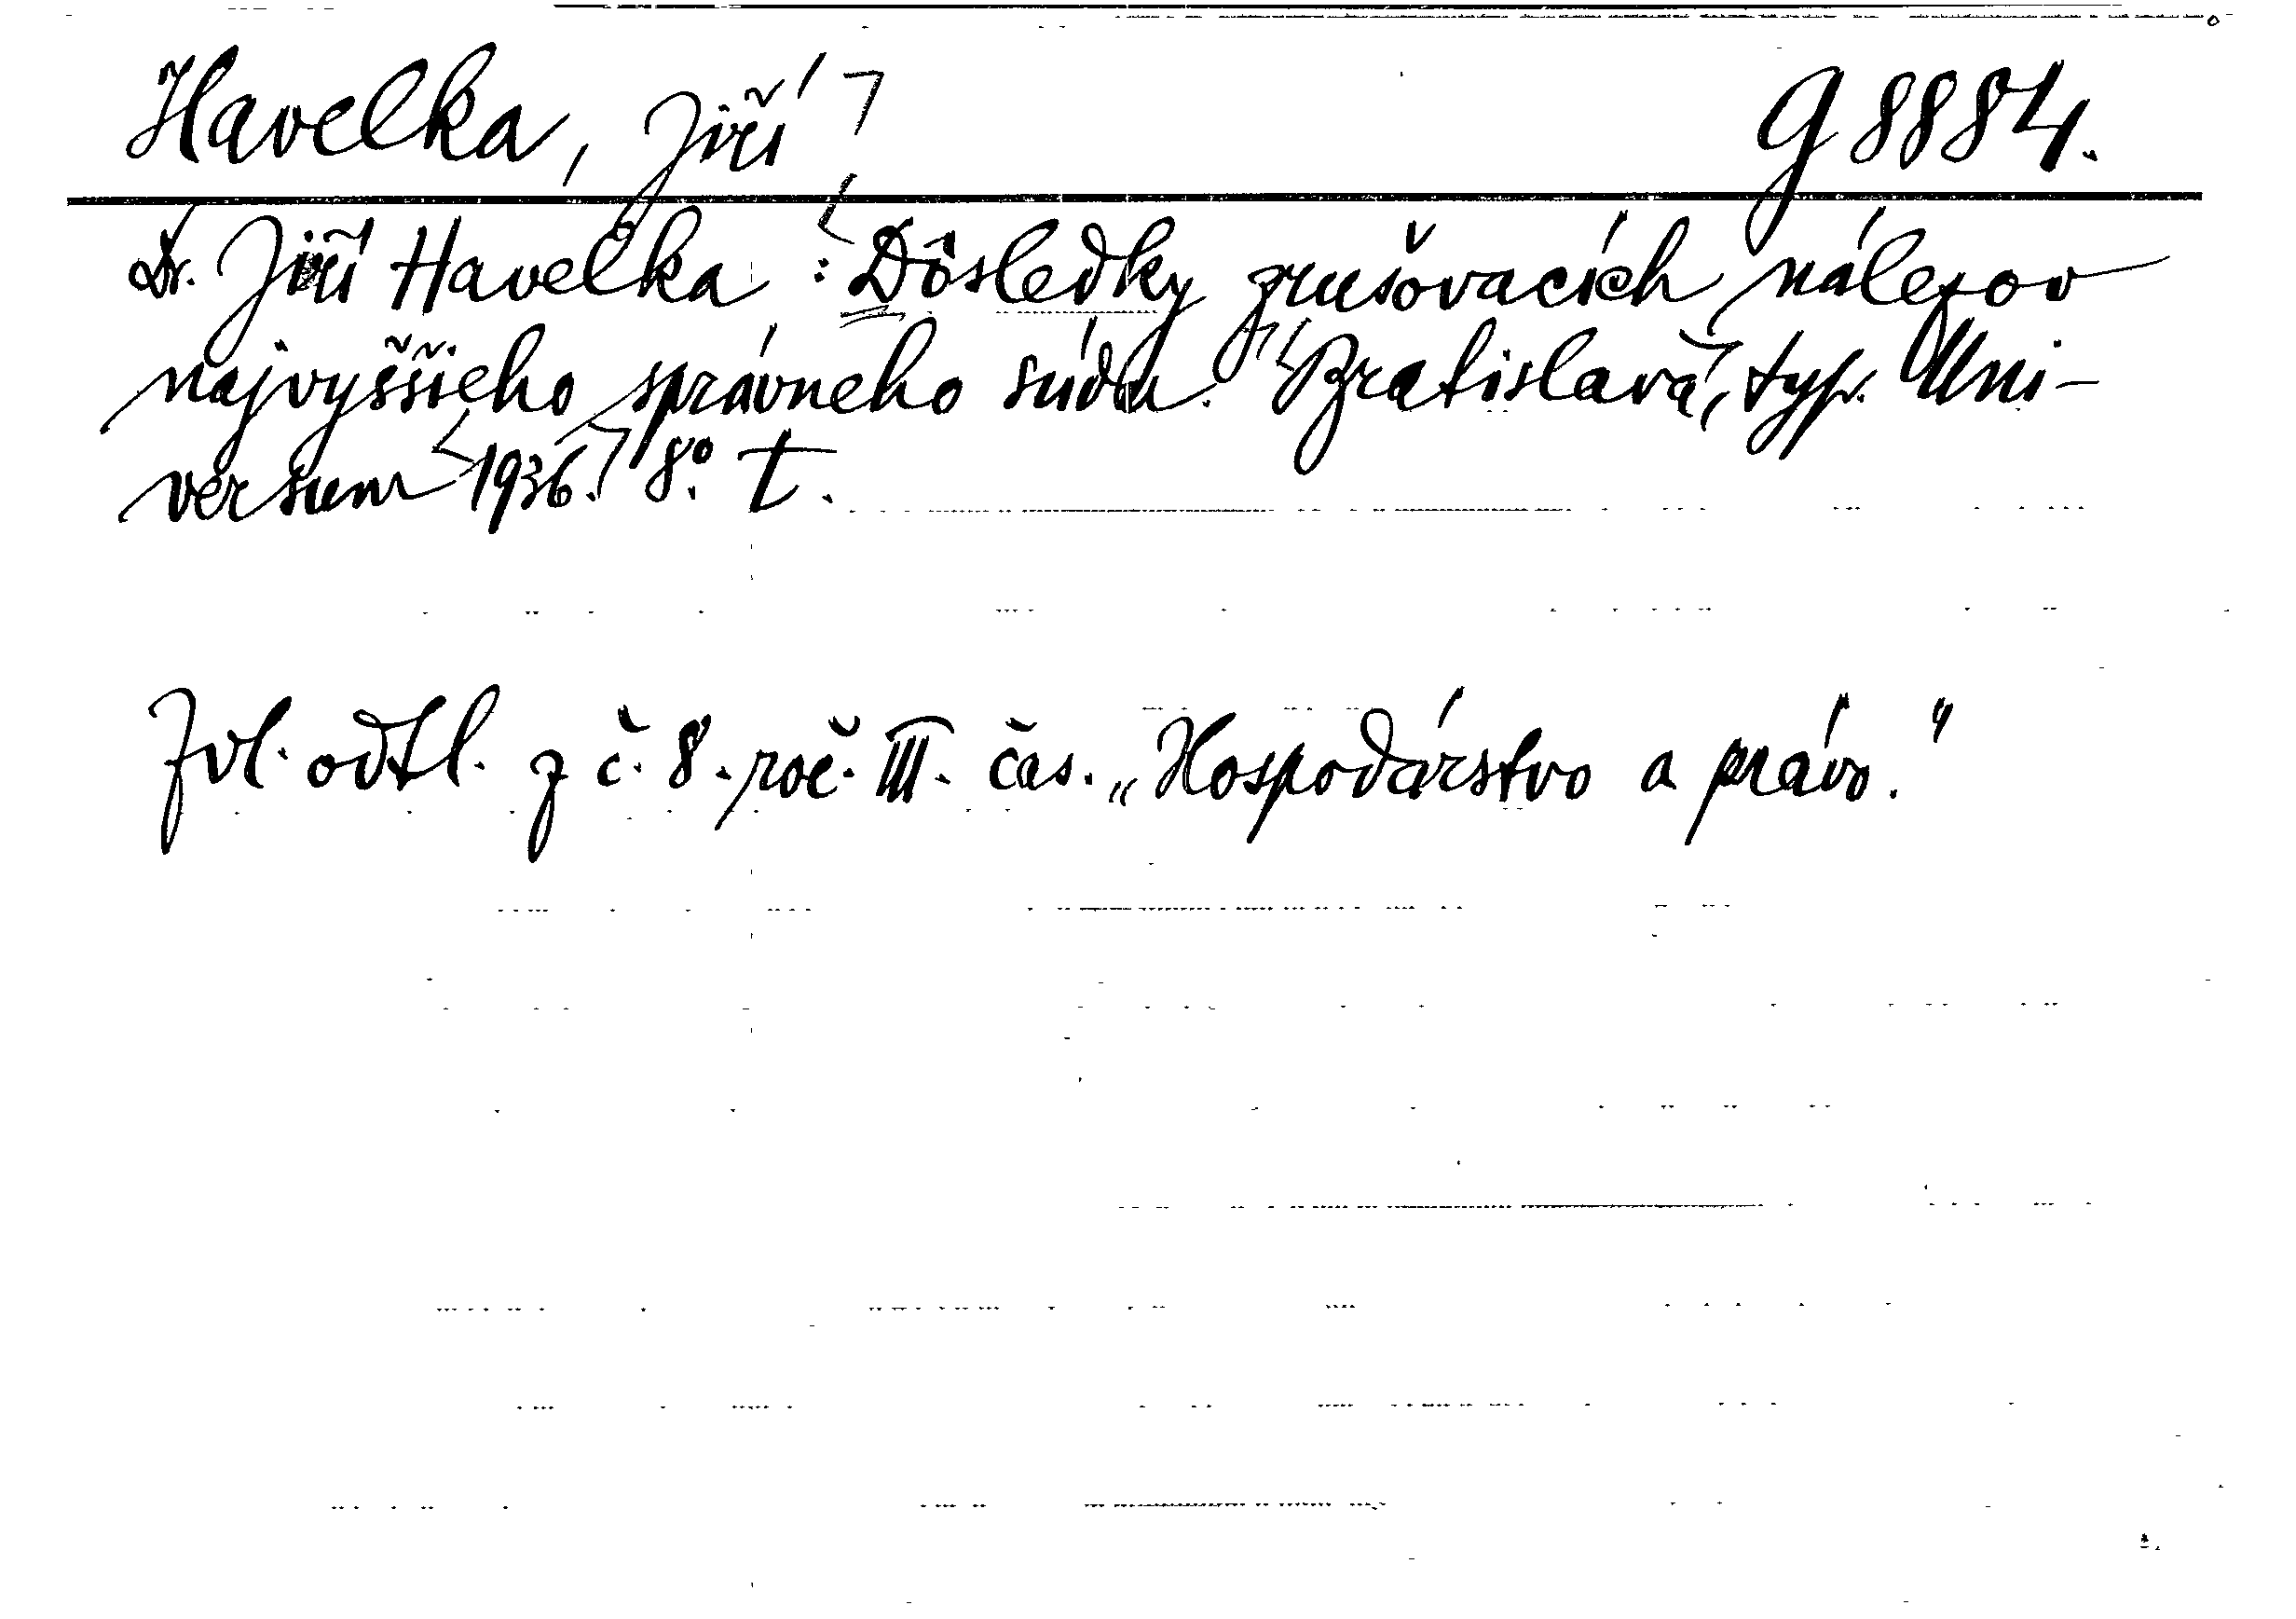 Havelka, Jiří G 8884.
Dr. Jiří Havelka: Dôsledky zrušovacích nálezov
najvyššieho správneho súdu. Bratislava, typ. Uni-
versum 1936. 8º. t.
Zvl. odtl. z č. 8. roč. III. čas. „Hospodárstvo a právo."